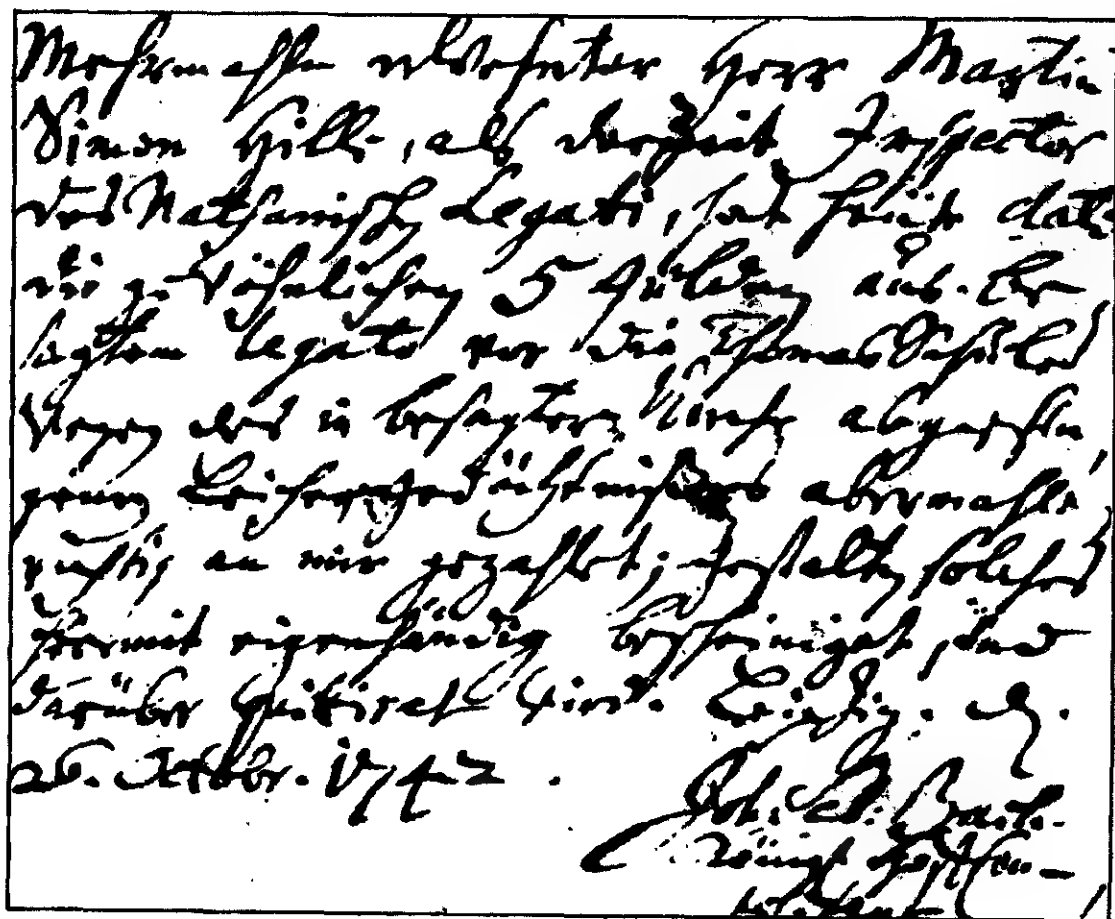 Mehrmahln erwehnter Herr Martin
Simon Hille, als derzeit Inspector
des Nathanischen Legati, hat heüte dato
die gewöhnlichen 5 Gülden aus be
sagtem Legato vor die Thomas Schüler
wegen des in besagter Kirche abgesun
genen Leichen gedächtnißes abermahls
richtig an mir gezahlet; gestalten solches
hiermit eigenhändig bescheiniget, und
darüber quitiret wird. Leipzig. d.
26. Octobr. 1742.
Joh. Seb. Bach.